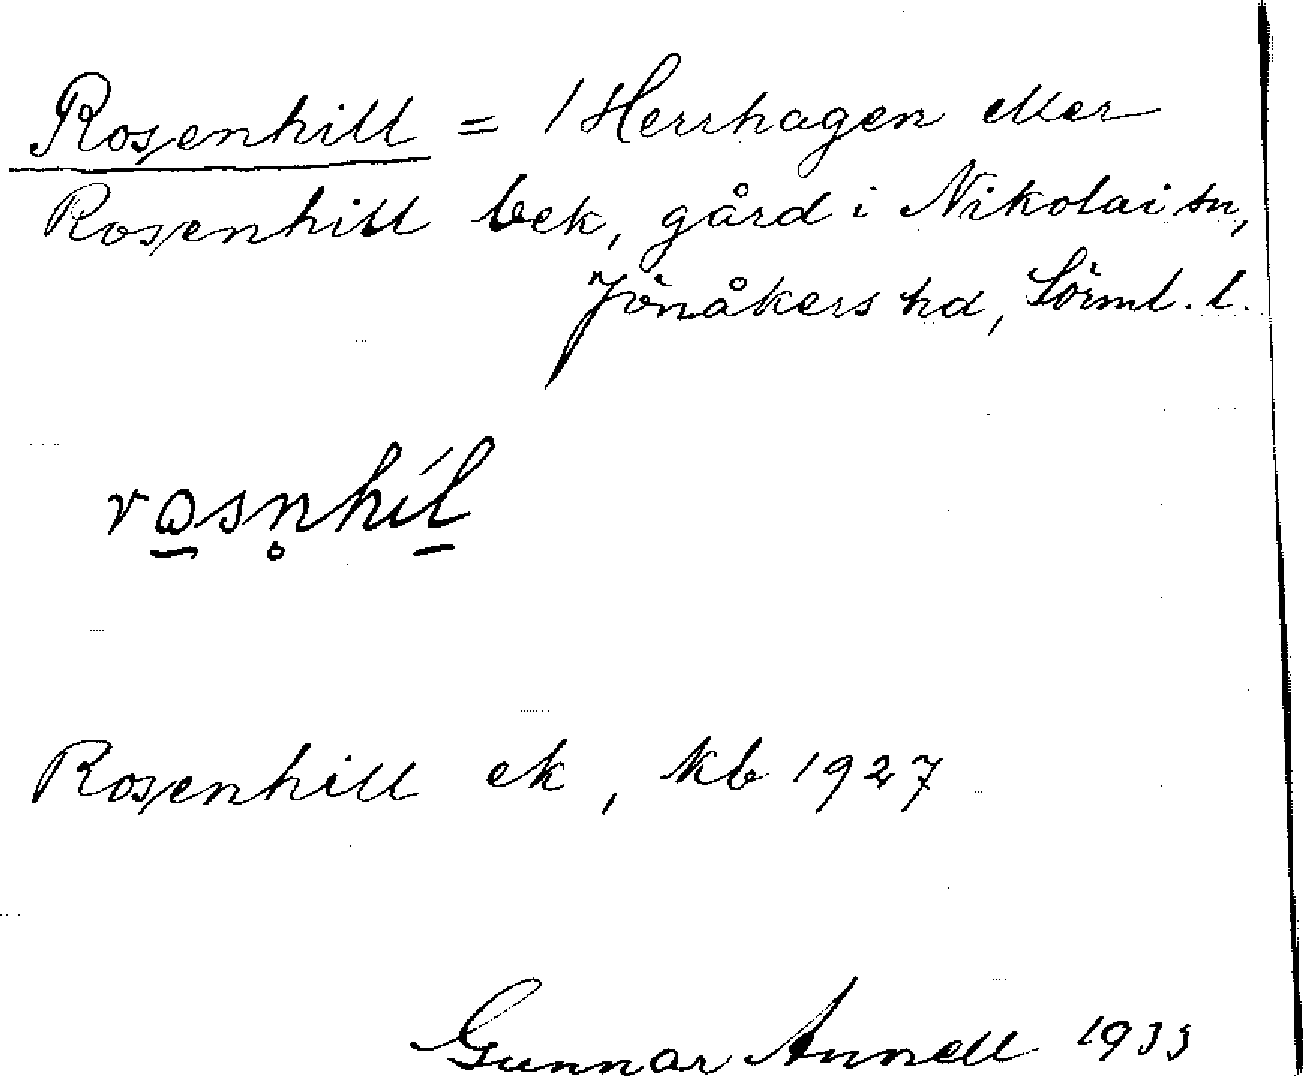 Rosenhill = / Herrhagen eller
Rosenhill bek, gård i Nikolai sn,
Jönåkers hd, Sörml. l.
rosn̥híl
Rosenhill ek, kb 1927
Gunnar Annell 1933